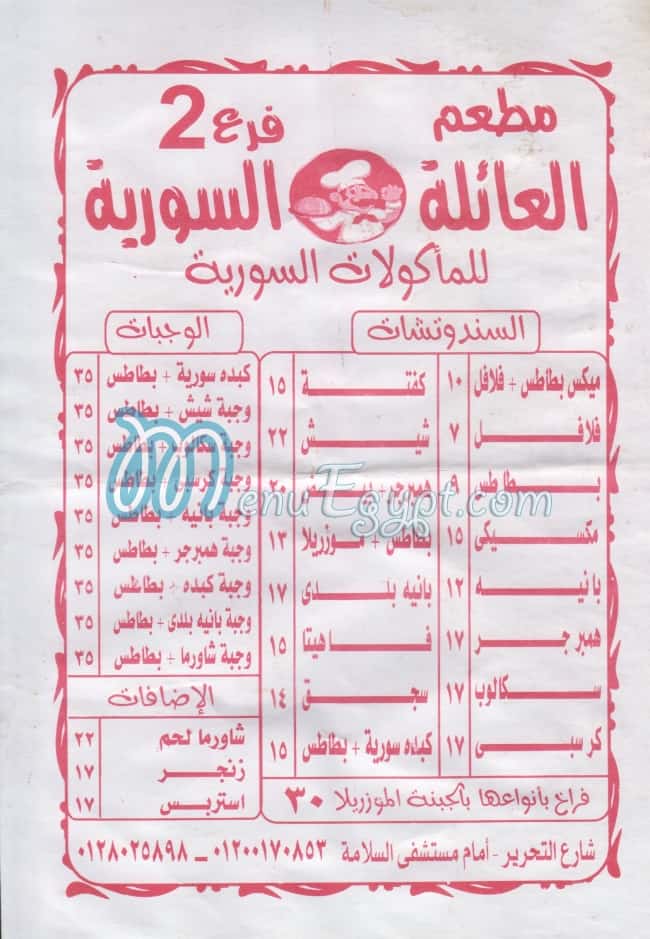 مطعم
فرع 2
العائلة السورية
للمأكولات السورية
السندوتشات
ميكس بطاطس + فلافل ١٠
فلافل ٧
بطاطس ٩
مكسيكى ١٥
بانيه ١٢
همبرجر ١٧
سكالوب ١٧
كرسبى ١٧
كفتة ١٥
شيش ٢٢
همبرجر + بيض ٢٠
بطاطس + موزريلا ١٣
بانيه بلدى ١٧
فاهيتا ١٥
سجق ١٤
كبده سورية + بطاطس ١٥
فراخ بأنواعها بالجبنة الموزريلا ٣٠
الوجبات
كبده سورية + بطاطس ٣٥
وجبة شيش + بطاطس ٣٥
وجبة سكالوب + بطاطس ٣٥
وجبة كرسبى + بطاطس ٣٥
وجبة بانيه + بطاطس ٣٥
وجبة همبرجر + بطاطس ٣٥
وجبة كبده + بطاطس ٣٥
وجبة بانيه بلدى + بطاطس ٣٥
وجبة شاورما + بطاطس ٣٥
الإضافات
شاورما لحم ٢٢
زنجر ١٧
استربس ١٧
شارع التحرير - أمام مستشفى السلامة ٠١٢٠٠١٧٠٨٥٣ - ٠١٢٨٠٢٥٨٩٨
MenuEgypt.com